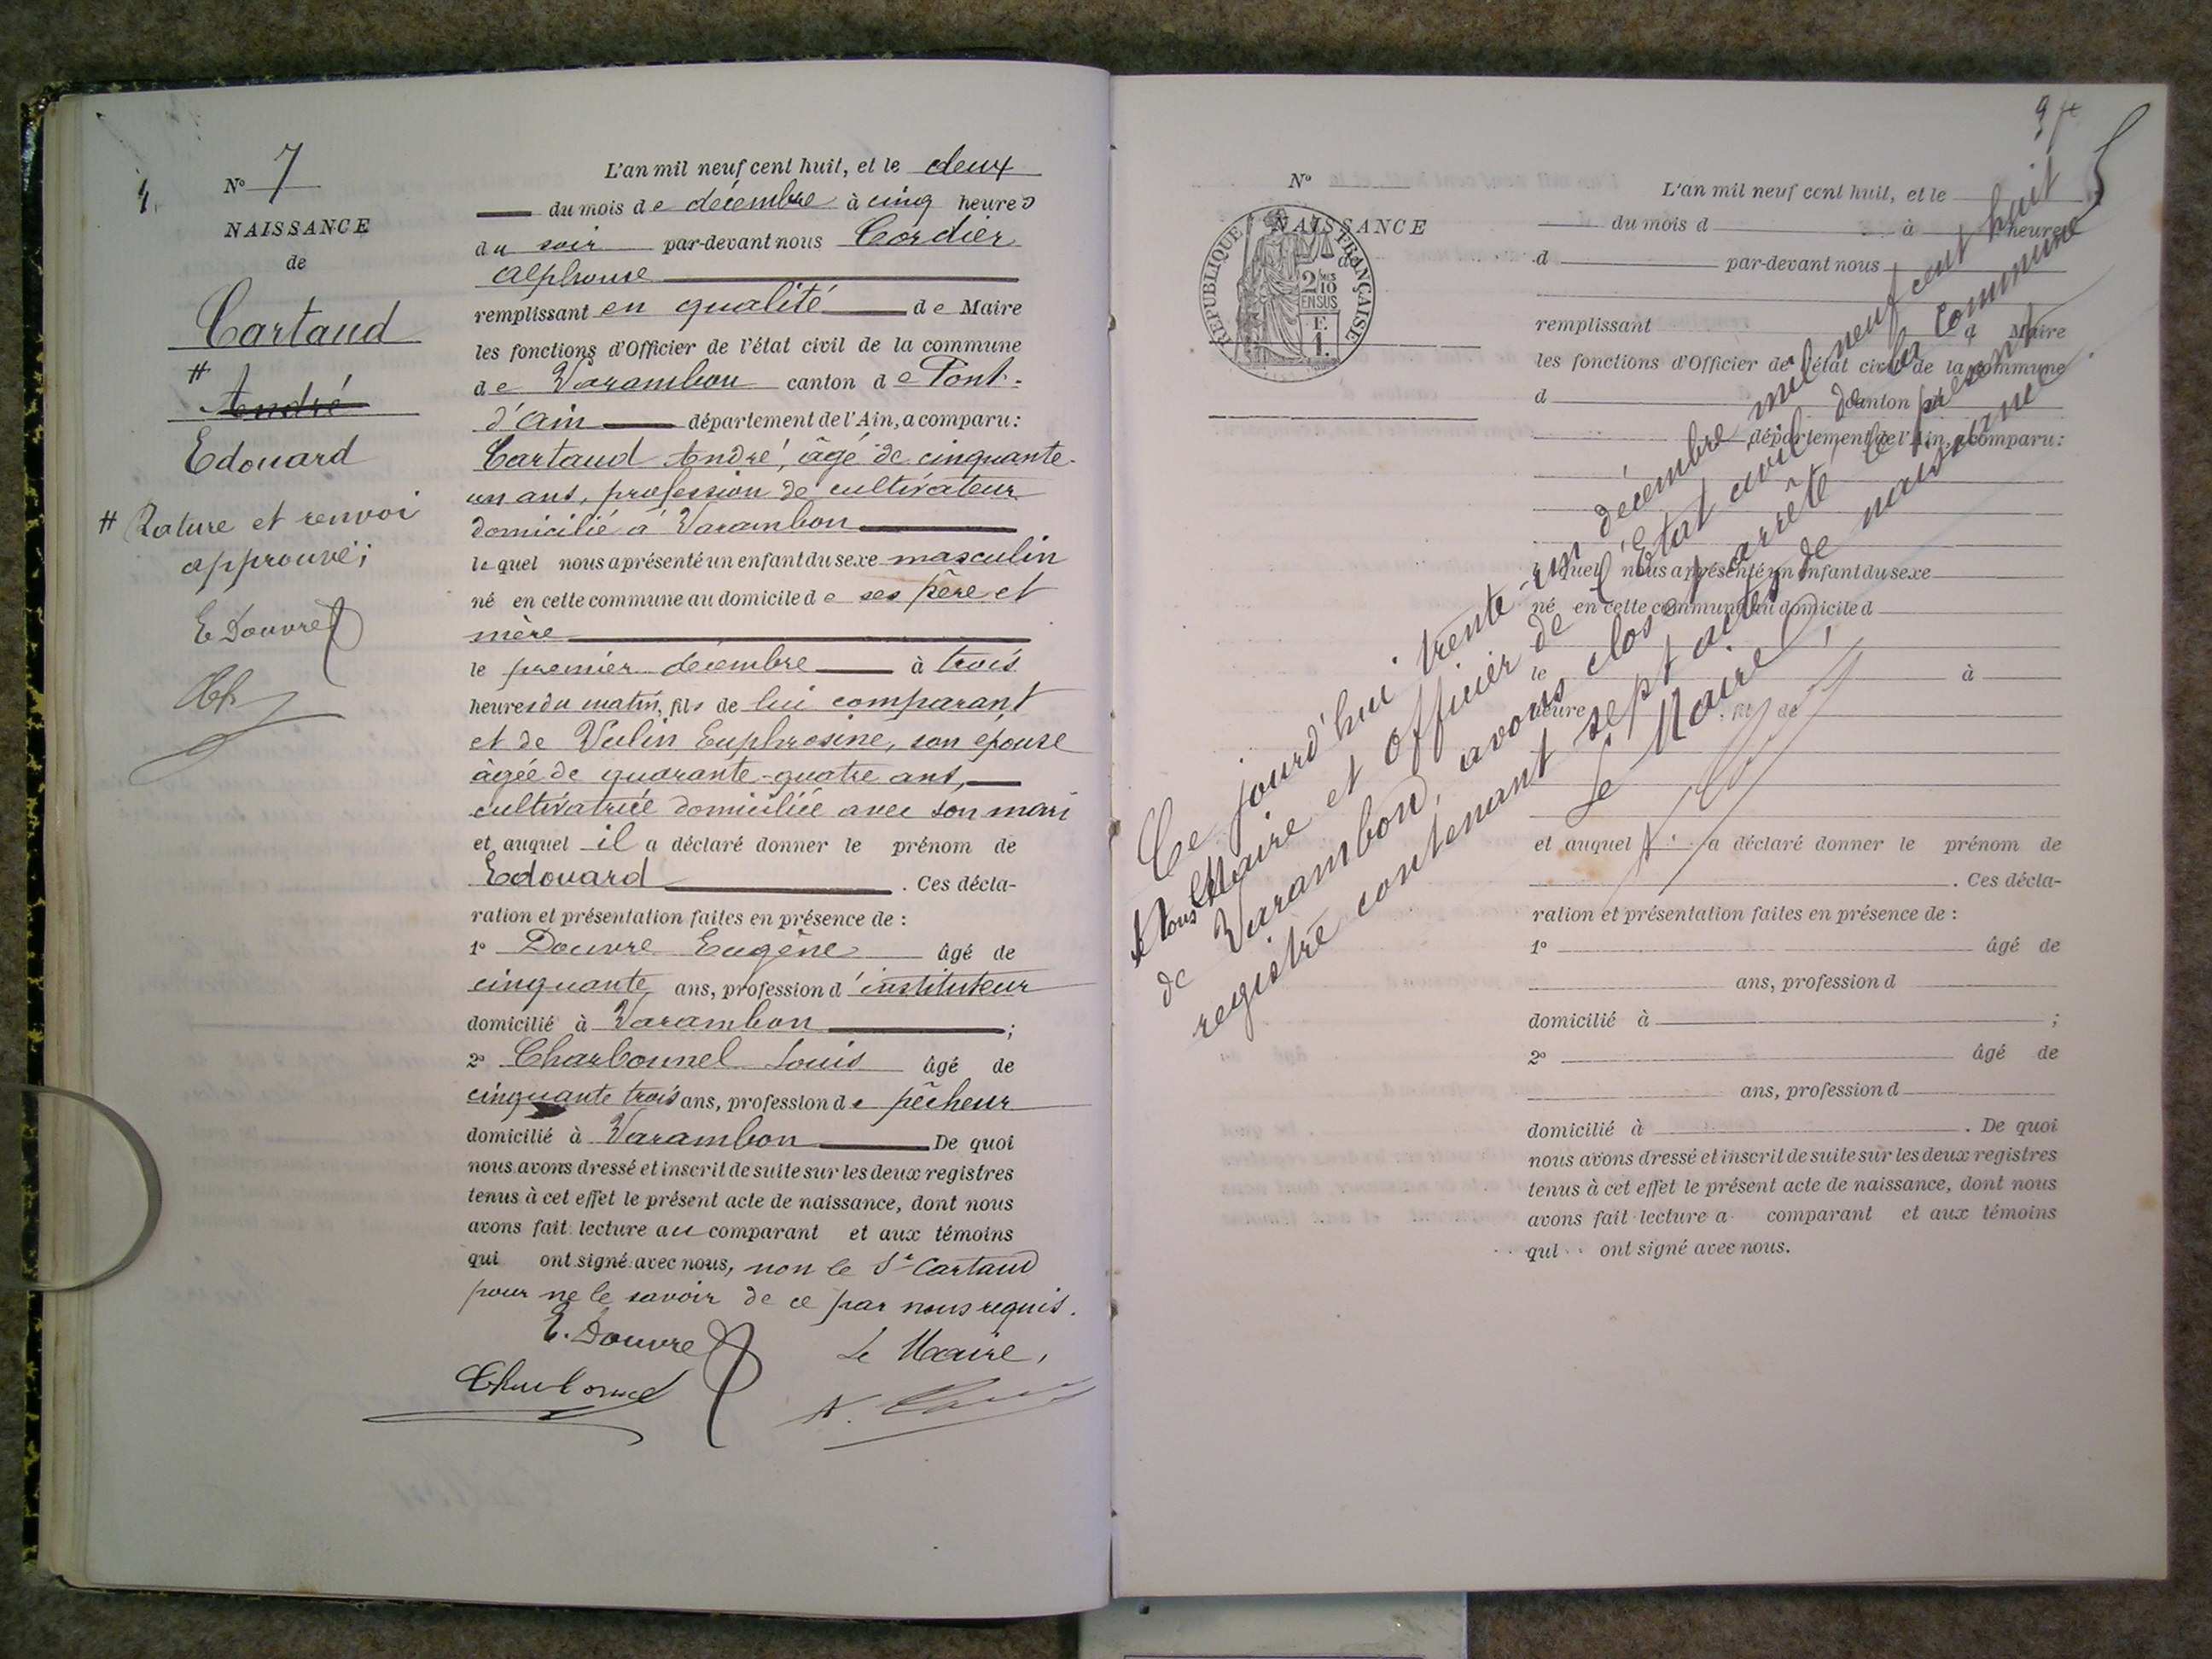 N° 7
NAISSANCE
de
Cartaud
#
André
Edouard
# Rature et renvoi
approuvé;
E Douvre
L'an mil neuf cent huit, et le deux
du mois de décembre à cinq heures
du soir par-devant nous Cordier
Alphonse
remplissant en qualité de Maire
les fonctions d'Officier de l'état civil de la commune
de Varambon canton de Pont-
d'Ain département de l'Ain, a comparu:
Cartaud André, âgé de cinquante-
un ans, profession de cultivateur
domicilié à Varambon
lequel nous a présenté un enfant du sexe masculin
né en cette commune au domicile de ses père et
mère
le premier décembre à trois
heures du matin, fils de lui comparant
et de Vulin Euphrosine, son épouse
âgée de quarante-quatre ans,
cultivatrice domiciliée avec son mari
et auquel il a déclaré donner le prénom de
Edouard . Ces décla-
ration et présentation faites en présence de :
1° Douvre Eugène âgé de
cinquante ans, profession d'instituteur
domicilié à Varambon ;
2° Charbonnel Louis âgé de
cinquante trois ans, profession de pêcheur
domicilié à Varambon De quoi
nous avons dressé et inscrit de suite sur les deux registres
tenus à cet effet le présent acte de naissance, dont nous
avons fait lecture au comparant et aux témoins
qui ont signé avec nous, non le Sr Cartaud
pour ne le savoir de ce par nous requis.
E. Douvre Le Maire,
Charbonnel
N°
NAISSANCE
de
RÉPUBLIQUE FRANÇAISE
2/10 EN SUS
F. 1.
L'an mil neuf cent huit, et le
du mois d à heure
d par-devant nous
remplissant d Maire
les fonctions d'Officier de l'état civil de la commune
d canton d
département de l'Ain, a comparu:
lequel nous a présenté un enfant du sexe
né en cette commune au domicile d
le à
heure fil de
et auquel a déclaré donner le prénom de
. Ces décla-
ration et présentation faites en présence de :
1° âgé de
ans, profession d
domicilié à ;
2° âgé de
ans, profession d
domicilié à . De quoi
nous avons dressé et inscrit de suite sur les deux registres
tenus à cet effet le présent acte de naissance, dont nous
avons fait lecture a comparant et aux témoins
qui ont signé avec nous.
Ce jourd'hui trente-un décembre mil neuf cent huit
Nous Maire et officier de l'Etat civil de la commune
de Varambon, avons clos et arrêté le présent
registre contenant sept actes de naissance.
Le Maire,